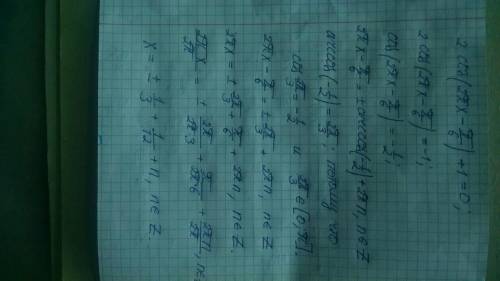 2 cos(2πx - π/6) + 1 = 0;
2 cos(2πx - π/6) = -1;
cos(2πx - π/6) = -1/2;
2πx - π/6 = ± arccos(-1/2) + 2πn, n∈Z
arccos(-1/2) = 2π/3; потому что
cos 2π/3 = -1/2 и 2π/3 ∈ [0, π].
2πx - π/6 = ± 2π/3 + 2πn, n∈Z
2πx = ± 2π/3 + π/6 + 2πn, n∈Z.
2πx/2π = ± 2π/2π·3 + π/2π·6 + 2πn/2π, n∈
x = ± 1/3 + 1/12 + n, n∈Z.